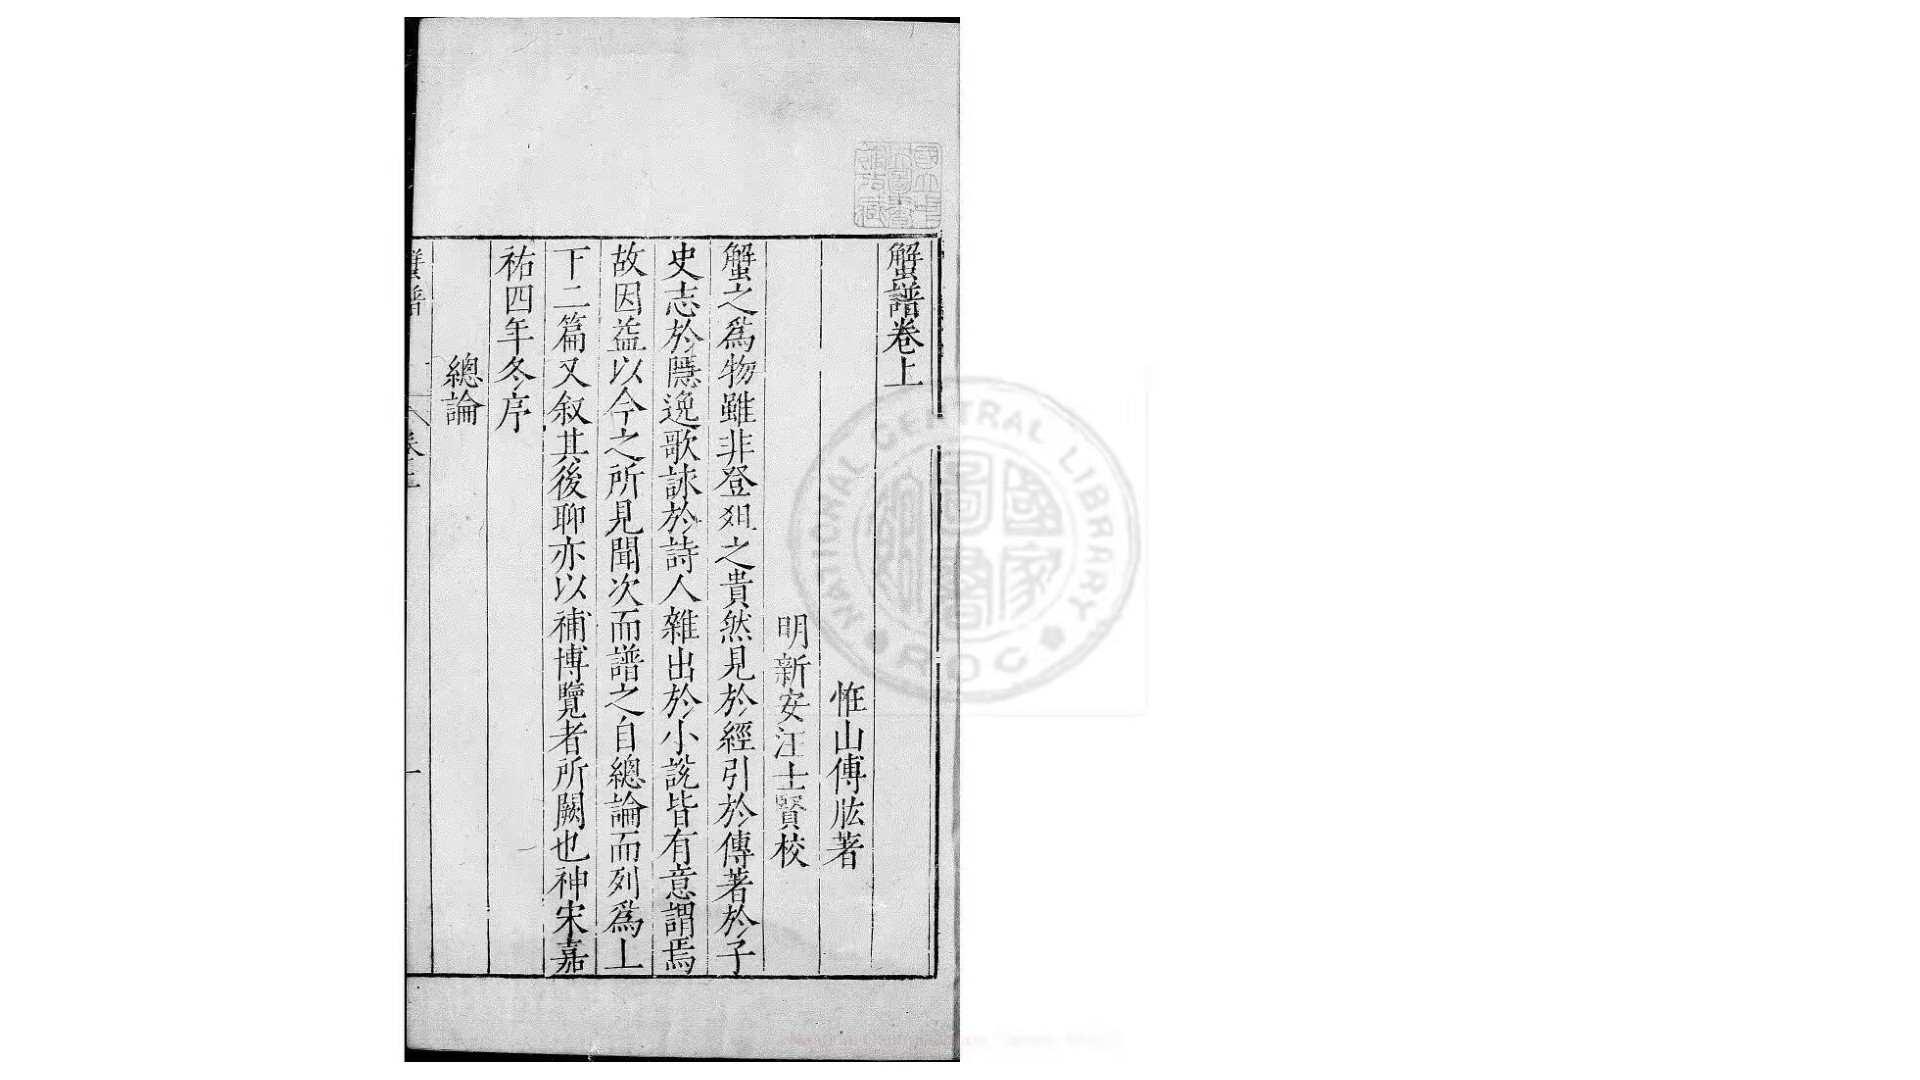 蟹譜卷上
恠山傅肱著
明新安汪士賢校
蟹之爲物雖非登俎之貴然見於經引於傳著於子
史志於隱逸歌詠於詩人雜出於小說皆有意謂焉
故因益以今之所見聞次而譜之自總論而列爲上
下二篇又叙其後聊亦以補博覽者所闕也神宋嘉
祐四年冬序
總論
蟹譜
卷上
一
NATIONAL CENTRAL LIBRARY
ROC
國家圖書館